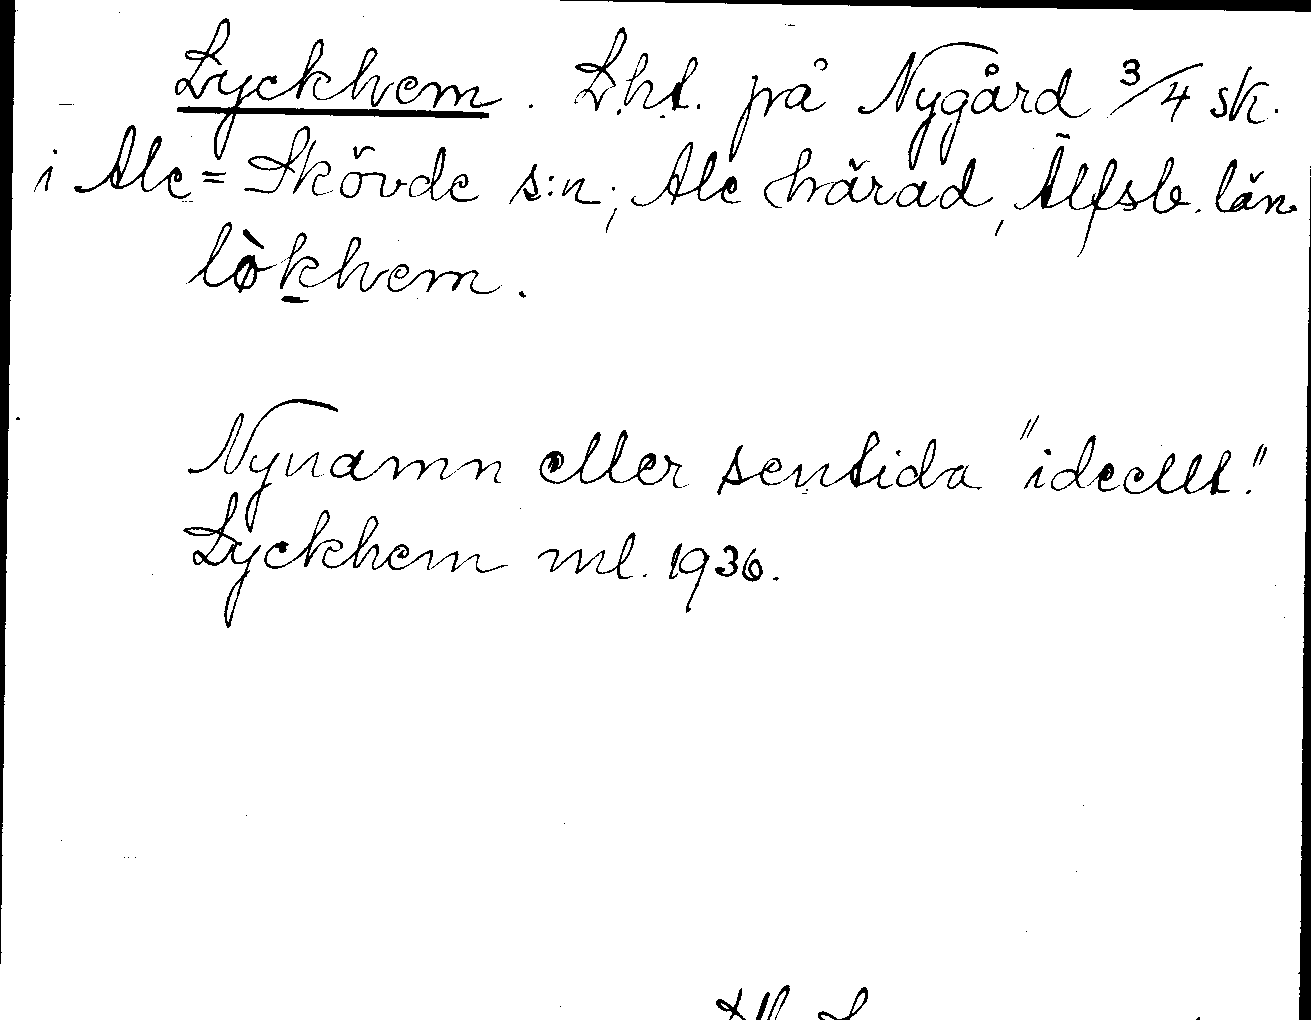 Lyckhem. Lht. på Nygård 3/4 sk.
i Ale=Skövde s:n, Ale härad, Älfsb. län
lø̀khem.
Nynamn eller sentida "ideellt".
Lyckhem ml. 1936.